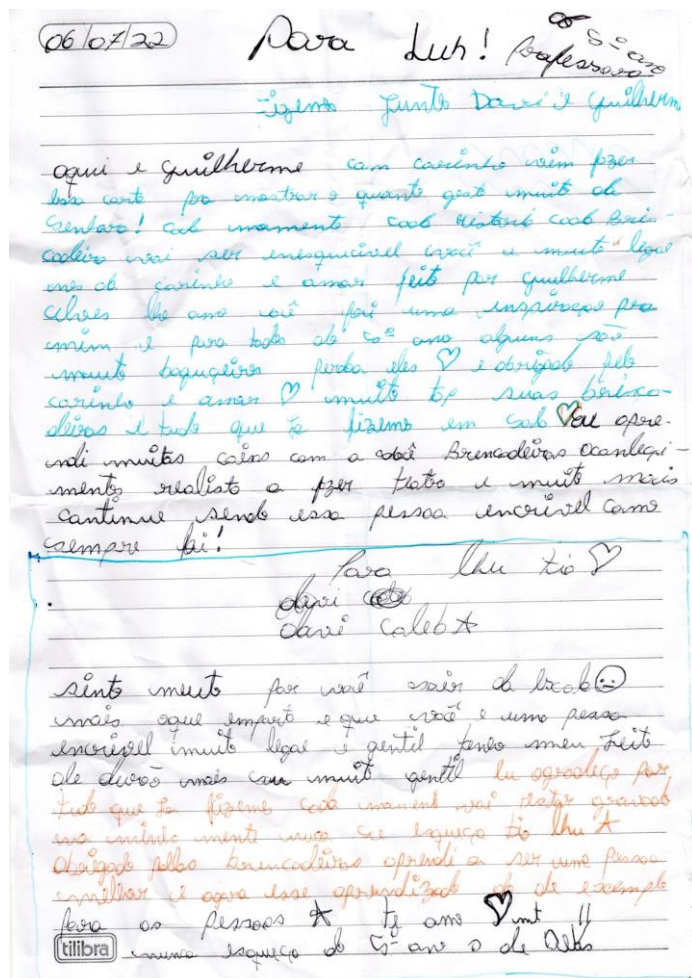 06/07/22 Para Luh! Professora 5º ano
Fizemo Junto Davi e Guilherm
aqui e Guilherme com carinho vem fazer
essa carta pra mostrar o quanto gosto muito de
Senhora! Cada momento cada cada Brin-
cadeira vai ser inesquecivel você e muito legal
carinho e amor feito por Guilherme
Alves te amo você foi uma inspiraçao pra
mim e para todos do 5º ano alguns são
muito bagunçeiros perdoa eles ♡ e obrigado pelo
carinho e amor ♡ muito top suas brinca-
deiras e tudo que ja fizemo em sala ♡ eu apre-
ndi muitas coisas com a você Brencadeiras
mento realista a fzer teatro e muito mais
continue sendo essa pessoa encrivel como
sempre foi!
Para lhu tia ♡
davi
Davi Caleb ☆
sinto muito por você sair da Escola
mais oque emporta e que você e uma pessoa
encrivel muito legal e gentil tenho meu Jeito
de durão mais sou muito gentil Eu agradeço por
tudo que ja fizemo cada moment vai
na minha mente nuca se esqueça tia lhu ☆
Obrigado pelas brencadeiras aprendi a ser uma pessoa
emelhor e agora esse aprendizado de exemplo
para as pessoas ☆ te amo ♡ mt !!
tilibra nunca esqueça do 5º ano